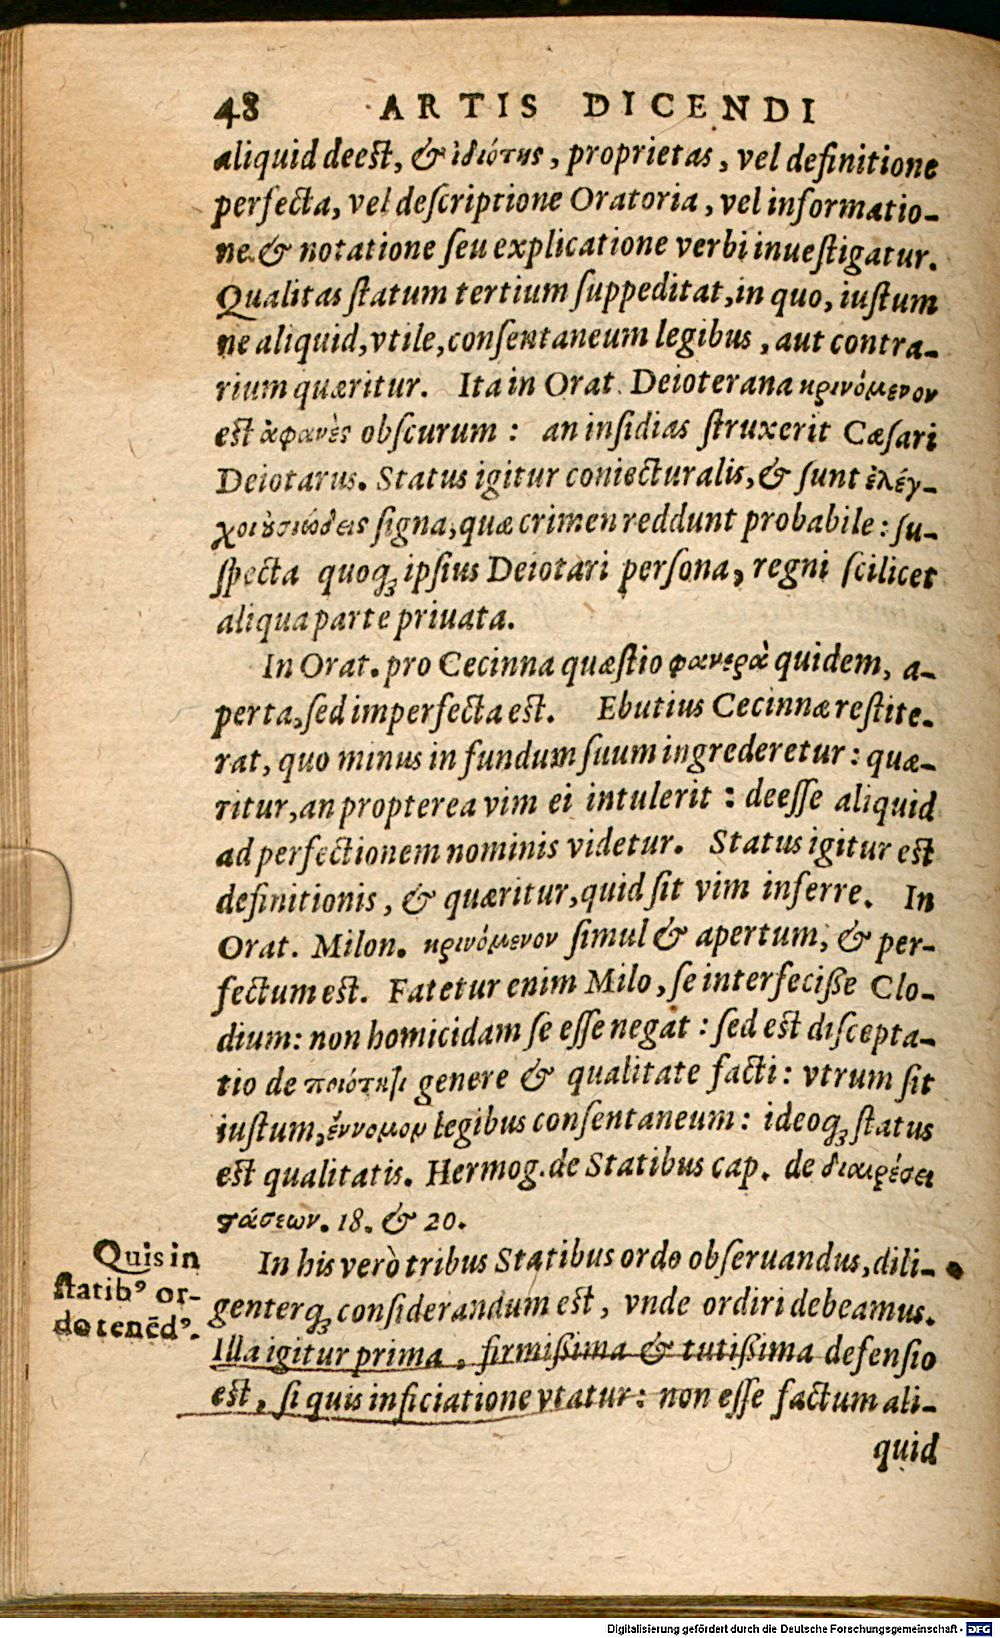 48 ARTIS DICENDI
aliquid deest, & ἰδιότης, proprietas, vel definitione
perfecta, vel descriptione Oratoria, vel informatio-
ne & notatione seu explicatione verbi inuestigatur.
Qualitas statum tertium suppeditat, in quo, iustum
ne aliquid, vtile, consentaneum legibus, aut contra-
rium quæritur. Ita in Orat. Deioterana κρινόμενον
est ἀφανὲς obscurum: an insidias struxerit Cæsari
Deiotarus. Status igitur coniecturalis, & sunt ἐλέγ-
χοι οὐσιώδεις signa, quæ crimen reddunt probabile: su-
specta quoq; ipsius Deiotari persona, regni scilicet
aliqua parte priuata.
In Orat. pro Cecinna quæstio φανερὰ quidem, a-
perta, sed imperfecta est. Ebutius Cecinnæ restite-
rat, quo minus in fundum suum ingrederetur: quæ-
ritur, an propterea vim ei intulerit: deesse aliquid
ad perfectionem nominis videtur. Status igitur est
definitionis, & quæritur, quid sit vim inferre. In
Orat. Milon. κρινόμενον simul & apertum, & per-
fectum est. Fatetur enim Milo, se interfecisse Clo-
dium: non homicidam se esse negat: sed est discepta-
tio de ποιότητι genere & qualitate facti: vtrum sit
iustum, ἔννομον legibus consentaneum: ideoq; status
est qualitatis. Hermog. de Statibus cap. de διαιρέσει
στάσεων. 18. & 20.
Quis in
statibꝰ or-
do tenēdꝰ.
In his verò tribus Statibus ordo obseruandus, dili-
genterq; considerandum est, vnde ordiri debeamus.
Illa igitur prima, firmissima & tutissima defensio
est, si quis inficiatione vtatur: non esse factum ali-
quid
Digitalisierung gefördert durch die Deutsche Forschungsgemeinschaft - DFG